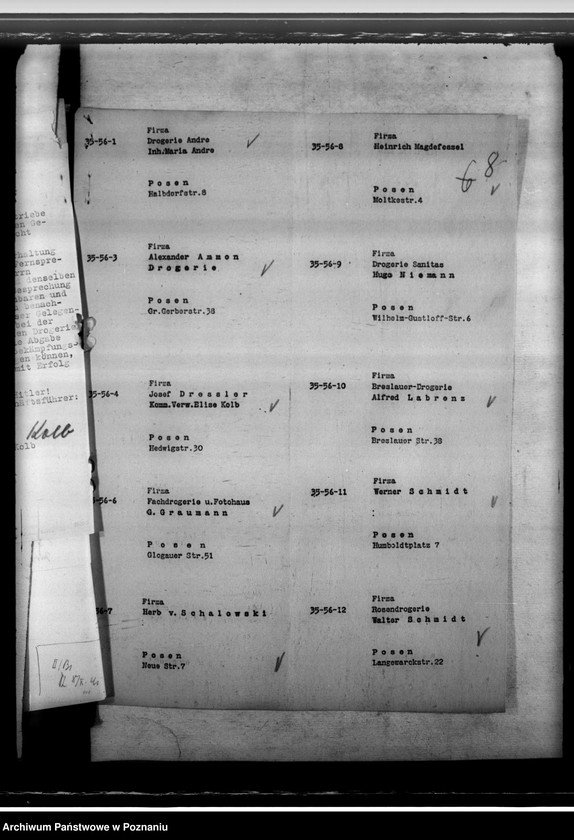 triebe
en Ge-
cht
haltung
Fernspre-
rrn
denselben
esprechung
baren und
benach-
ser Gelegen-
bei der
en Drogerie
ie Abgabe
ekämpfungs-
en können,
mit Erfolg
itler!
häftsführer:
Kolb
Kolb
68
35-56-1
Firma
Drogerie Andre
Inh.Maria Andre
Posen
Halbdorfstr.8
35-56-3
Firma
Alexander Ammon
Drogerie
Posen
Gr.Gerberstr.38
35-56-4
Firma
Josef Dressler
Komm.Verw.Elise Kolb
Posen
Hedwigstr.30
-56-6
Firma
Fachdrogerie u.Fotohaus
G. Graumann
Posen
Glogauer Str.51
56-7
Firma
Herb v. Schalowski
Posen
Neue Str.7
35-56-8
Firma
Heinrich Magdefessel
Posen
Moltkestr.4
35-56-9
Firma
Drogerie Sanitas
Hugo Niemann
Posen
Wilhelm-Gustloff-Str.6
35-56-10
Firma
Breslauer-Drogerie
Alfred Labrenz
Posen
Breslauer Str.38
35-56-11
Firma
Werner Schmidt
Posen
Humboldtplatz 7
35-56-12
Firma
Rosendrogerie
Walter Schmidt
Posen
Langemarckstr.22
Archiwum Państwowe w Poznaniu